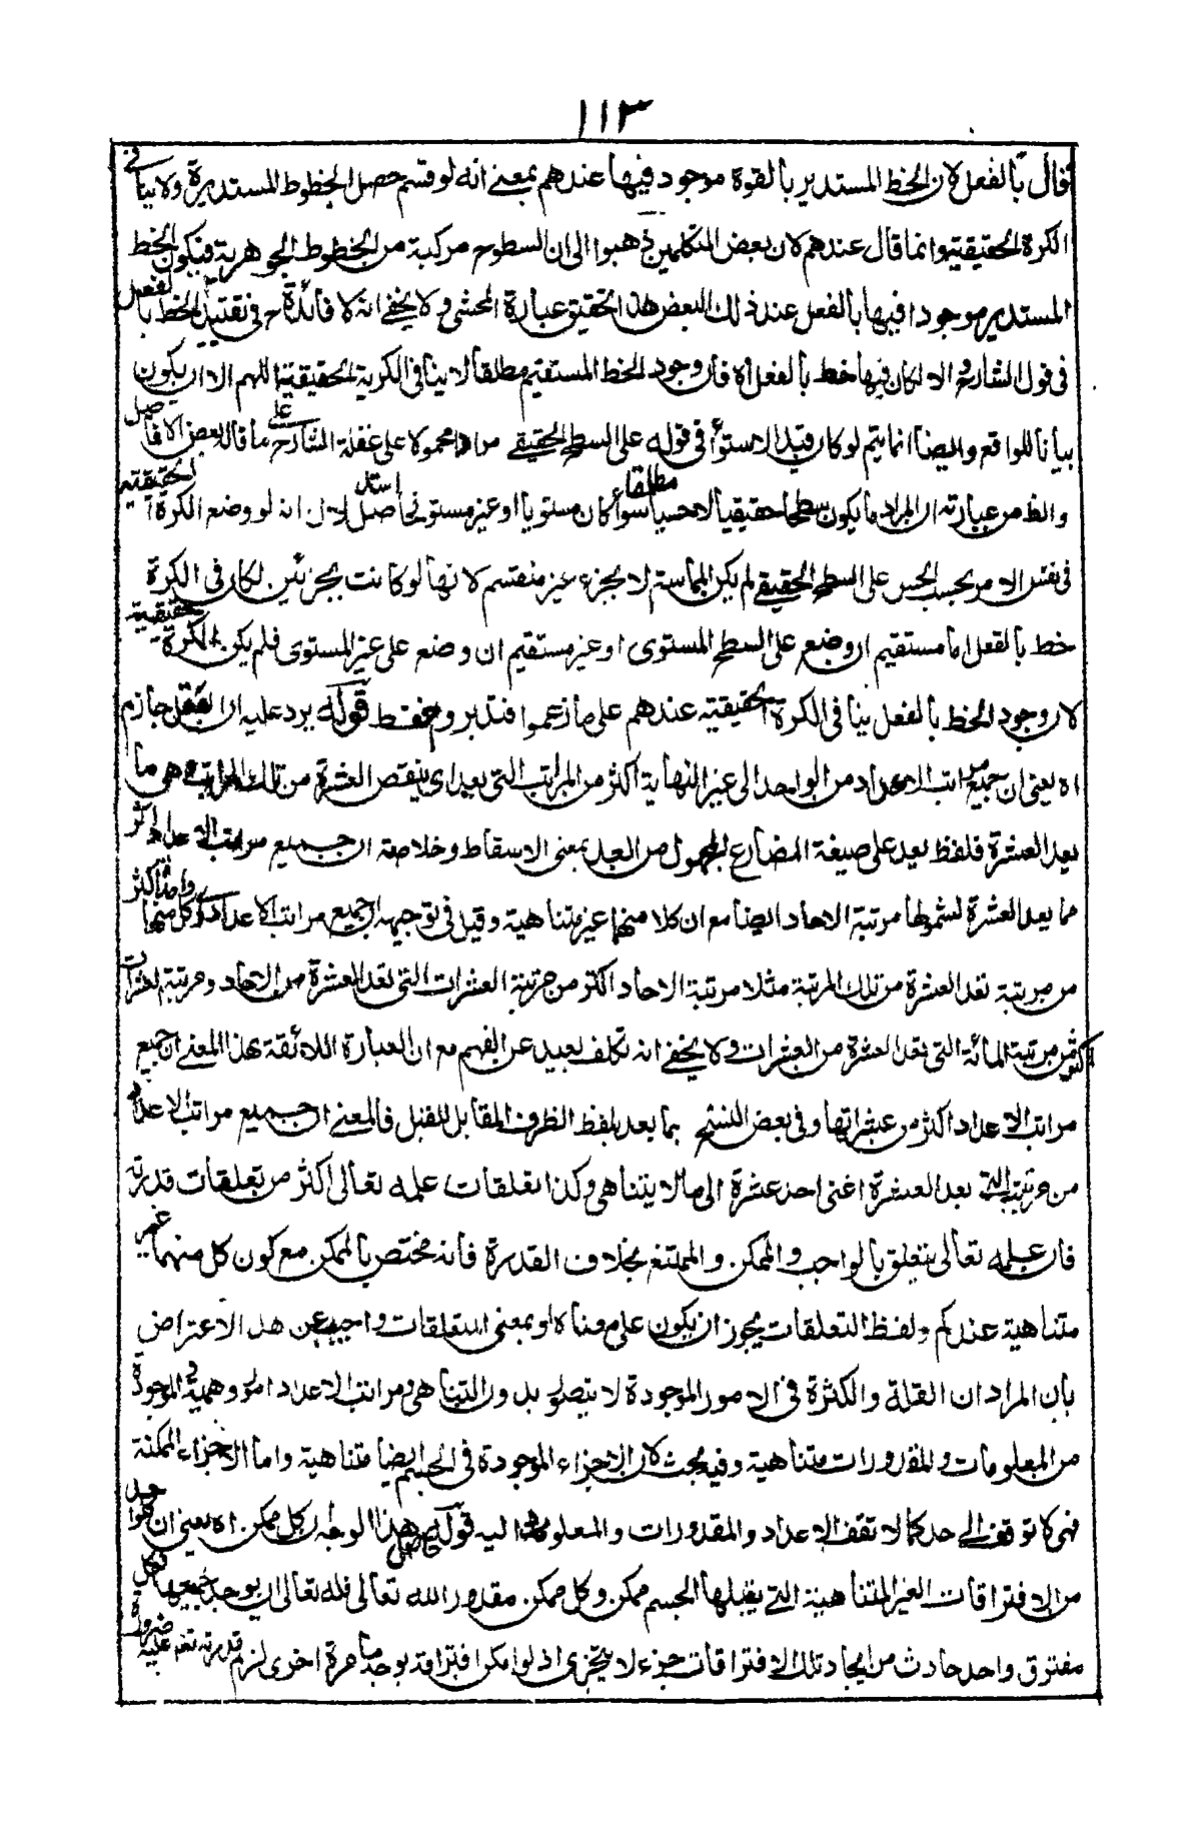 ١١٣
قال بالفعل لان الخط المستدير بالقوة موجود فيها عندهم بمعنى انه لو قسم حصل الخطوط المستديرة ولا ينافى
الكرة الحقيقية وانما قال عندهم لان بعض المتكلمين ذهبوا الى ان السطوح مركبة من الخطوط الجوهرية فيكون الخط
المستدير موجودا فيها بالفعل عند ذلك البعض هذا تحقيق عبارة المحشى ولا يخفى انه لا فائدة ح فى تقييد الخط بالفعل
فى قول الشارح والا لكان فيها خط بالفعل اه فان وجود الخط المستقيم مطلقا لا ينافى الكرية الحقيقية اللهم الا ان يكون
بيانا للواقع وايضا انما يتم لو كان قيد الاستواء فى قوله على السطح الحقيقى مرادا محمولا على غفلة الشارح على ما قاله بعض الافاضل
والظ من عبارته ان المراد ما يكون سطحا حقيقيا لا حسيا سواء كان مستويا او غير مستو فحاصل الاستدلال انه لو وضع الكرة الحقيقية
فى نفس الامر بحسب الحس على السطح الحقيقى مطلقا لم يكن المماسة الا بجزء غير منقسم لانها لو كانت بجزئين لكان فى الكرة
خط بالفعل اما مستقيم ان وضع على السطح المستوى او غير مستقيم ان وضع على غير المستوى فلم يكن الكرة حقيقية
لان وجود الخط بالفعل ينافى الكرة الحقيقية عندهم على ما زعموا فتدبر واحفظ قوله يرد عليه ان العقل جازم
اه يعنى ان جميع مراتب الاعداد من الواحد الى غير النهاية اكثر من المراتب التى يعد اى ينقص العشرة من تلك المراتب وهى ما
بعد العشرة فلفظ يعد على صيغة المضارع المجهول من العد بمعنى الاسقاط وخلاصته ان جميع مراتب الاعداد اكثر
مما بعد العشرة لشمولها مرتبة الاحاد ايضا مع ان كلا منهما غير متناهية وقيل فى توجيهه ان جميع مراتب الاعداد كل واحد منها اكثر
من مرتبة تعد العشرة من تلك المرتبة مثلا مرتبة الاحاد اكثر من مرتبة العشرات التى تعد العشرة من الاحاد ومرتبة العشرات
اكثر من مرتبة المائة التى تعد العشرة من العشرات ولا يخفى انه تكلف بعيد عن الفهم مع ان العبارة اللائقة بهذا المعنى ان جميع
مراتب الاعداد اكثر من عشراتها وفى بعض النسخ بما بعد بلفظ الظرف المقابل للقبل فالمعنى ان جميع مراتب الاعداد
من مرتبة التى بعد العشرة اعنى احد عشرة الى ما لا يتناهى وكذا تعلقات علمه تعالى اكثر من تعلقات قدرته
فان علمه تعالى يتعلق بالواجب والممكن والممتنع بخلاف القدرة فانه مختص بالممكن مع كون كل منهما غير
متناهية عندكم ولفظ التعلقات يجوز ان يكون على معناه او بمعنى المتعلقات واجيب عن هذا الاعتراض
بان المراد ان القلة والكثرة فى الامور الموجودة لا يتصور بدون التناهى ومراتب الاعداد امور وهمية والموجودة
من المعلومات والمقدورات متناهية وفيه بحث لان الاجزاء الموجودة فى الجسم ايضا متناهية واما الاجزاء الممكنة
فهى كا توقف الى حد كما لا تقف الاعداد والمقدورات والمعلومات اليه قوله حاصل هذا الوجه ان كل ممكن اه يعنى ان كل واحد
من الافتراقات الغير المتناهية التى يقبلها الجسم ممكن وكل ممكن مقدور الله تعالى فله تعالى ان يوجد جميعها فكل
مفترق واحد حادث من ايجاد تلك الافتراقات جزء لا يتجزى اذ لو امكن افتراقه بوجد ما مرة اخرى لزم قدرته تعالى عليه ضرورة